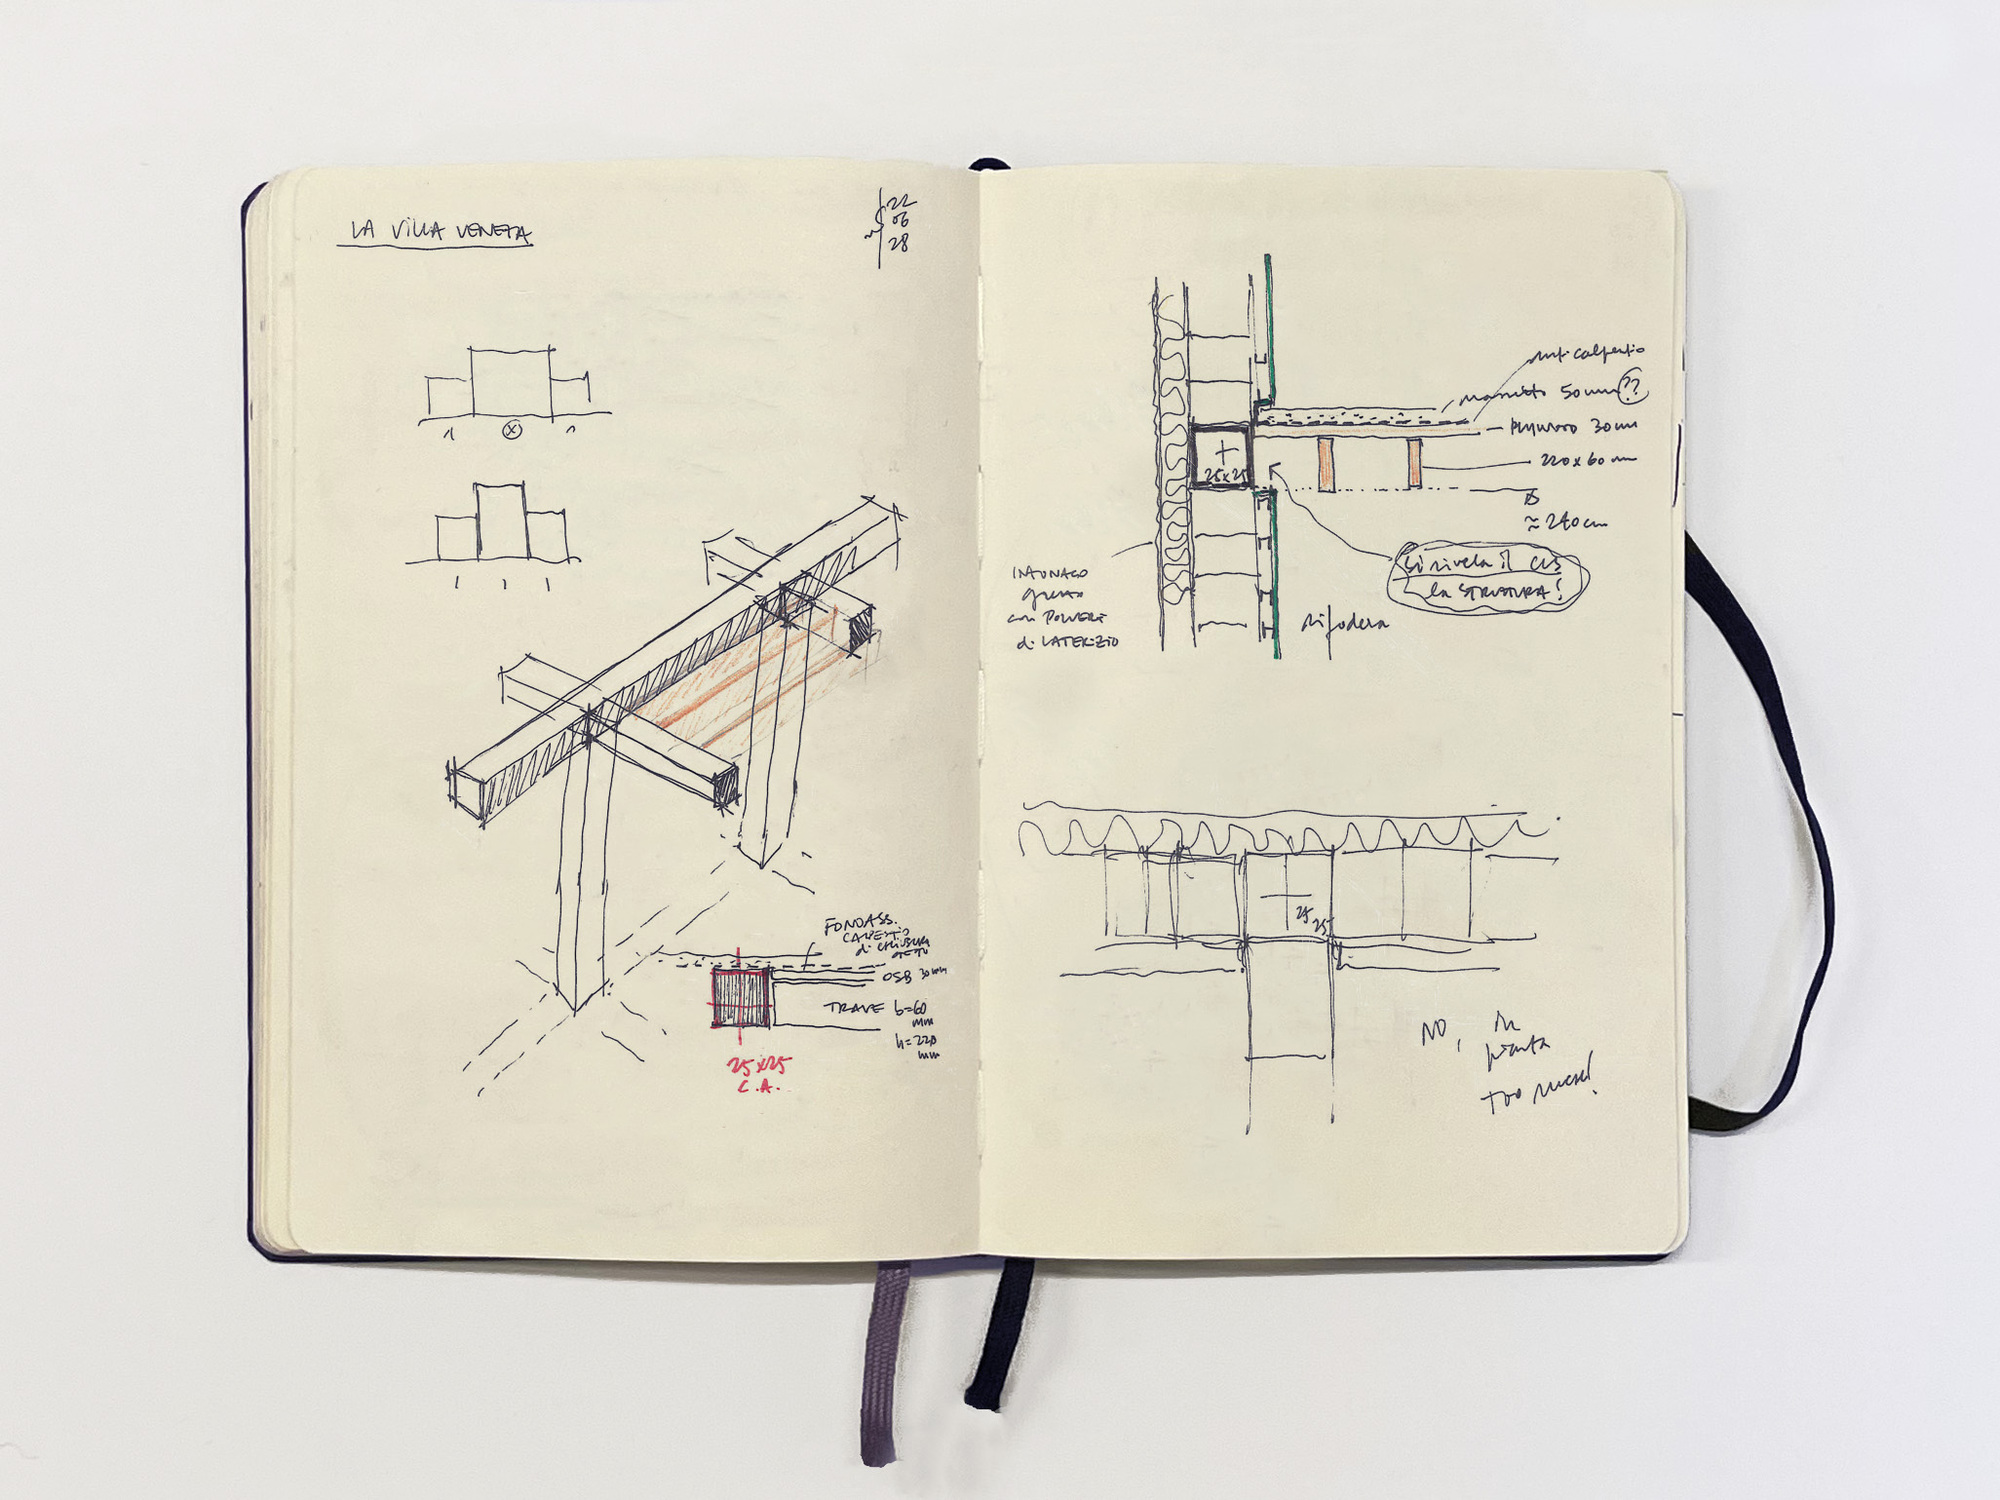 LA VILLA VENETA
22
06
28
1 X 1
1 1 1
FONOASS.
CALPESTIO
di
OSB 30 mm
TRAVE b=60
mm
h=220
mm
25x25
C.A.
anticalpestio
massetto 50 mm ??
30 mm
220x60 mm
25x25
≈ 240 cm
Si rivela il CLS
la STRUTTURA!
INTONACO
grosso
con POLVERE
di LATERIZIO
rifodera
25
25
NO, in
pianta
too much!